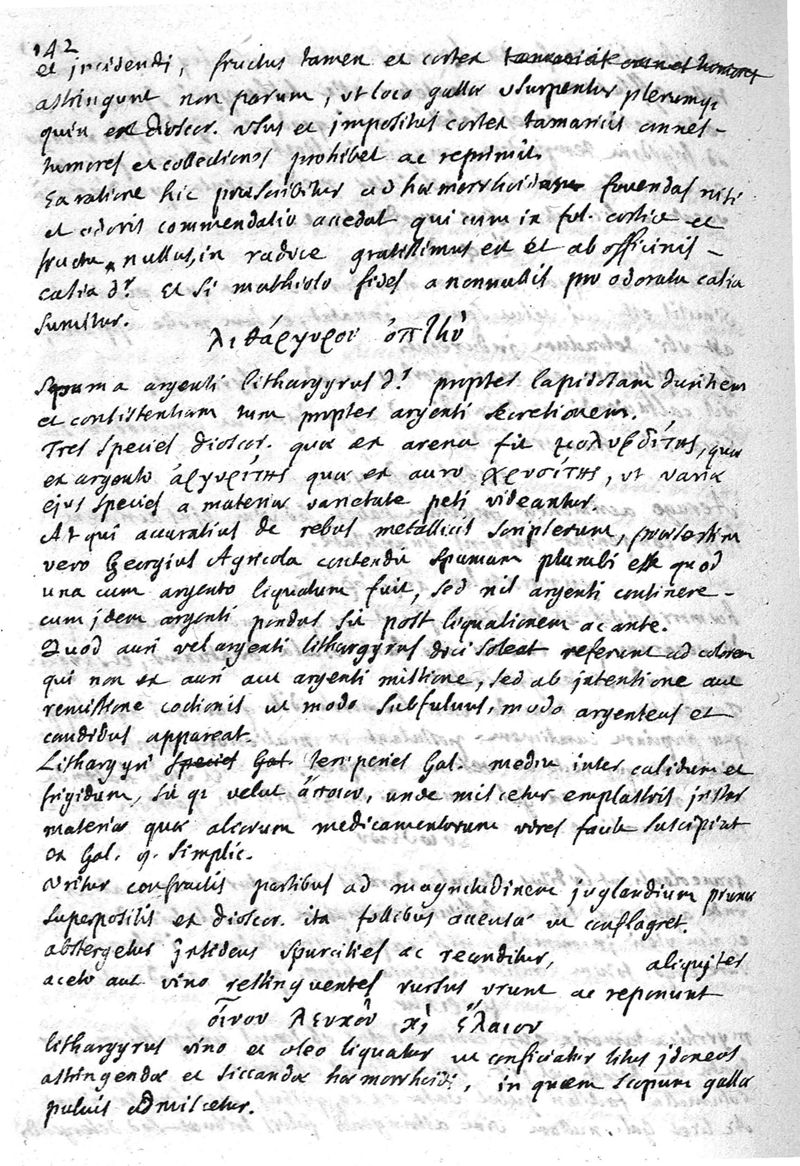 142
et incidendi, fructus tamen et cortex
astringunt non parum, ut loco gallæ usurpentur plerumq;
quin ex dioscor. usus et impositus cortex tamaricis omnes -
tumores et collectiones prohibet ac reprimit.
Ea ratione hic præscribitur ad hæmorrhoidas fovendas nisi
et odoris commendatio accedat qui cum in fol. cortice et
fructu nullus, in radice gratissimus est et ab officinis -
casia dr. Et si mathiolo fides a nonnullis pro odorata casia
sumitur.
λιθάργυρου ὀπτοῦ
Spuma argenti lithargyrus dr. propter lapidosam duritiem
et consistentiam tum propter argenti secretionem.
Tres species dioscor. quæ ex arena fit μολυβδίτης, quæ
ex argento ἀργυρίτης quæ ex auro χρυσίτης, ut variæ
ejus species a materiæ varietate peti videantur.
At qui accuratius de rebus metallicis scripserunt, præsertim
vero Georgius Agricola contendit spumam plumbi esse quod
una cum argento liquatum fuit, sed nil argenti continere -
cum idem argenti pondus sit post liquationem ac ante.
Quod auri vel argenti lithargyrus dici soleat referunt ad colorem
qui non ex auri aut argenti mistione, sed ab intentione aut
remissione coctionis ut modo subfulvus, modo argenteus et
candidus appareat.
Lithargyri species Gal. temperies Gal. media inter calidum et
frigidum, sit qz velut ἄποιον, unde miscetur emplastris instar
materiæ quæ aliorum medicamentorum vires facile suscipiat
ex Gal. 9. simplic.
Uritur confractis partibus ad magnitudinem juglandium prunis
superpositis ex dioscor. ita follibus accensa ut conflagret.
abstergetur insidens spurcities ac reconditur, aliquities
aceto aut vino restinguentes rursus urunt ac reponunt
οἴνου λευκοῦ κὶ ἔλαιον
lithargyrus vino et oleo liquatur ut conficiatur litus idoneus
astringendæ et siccandæ hæmorrhoidi, in quem scopum gallæ
pulvis admiscetur.